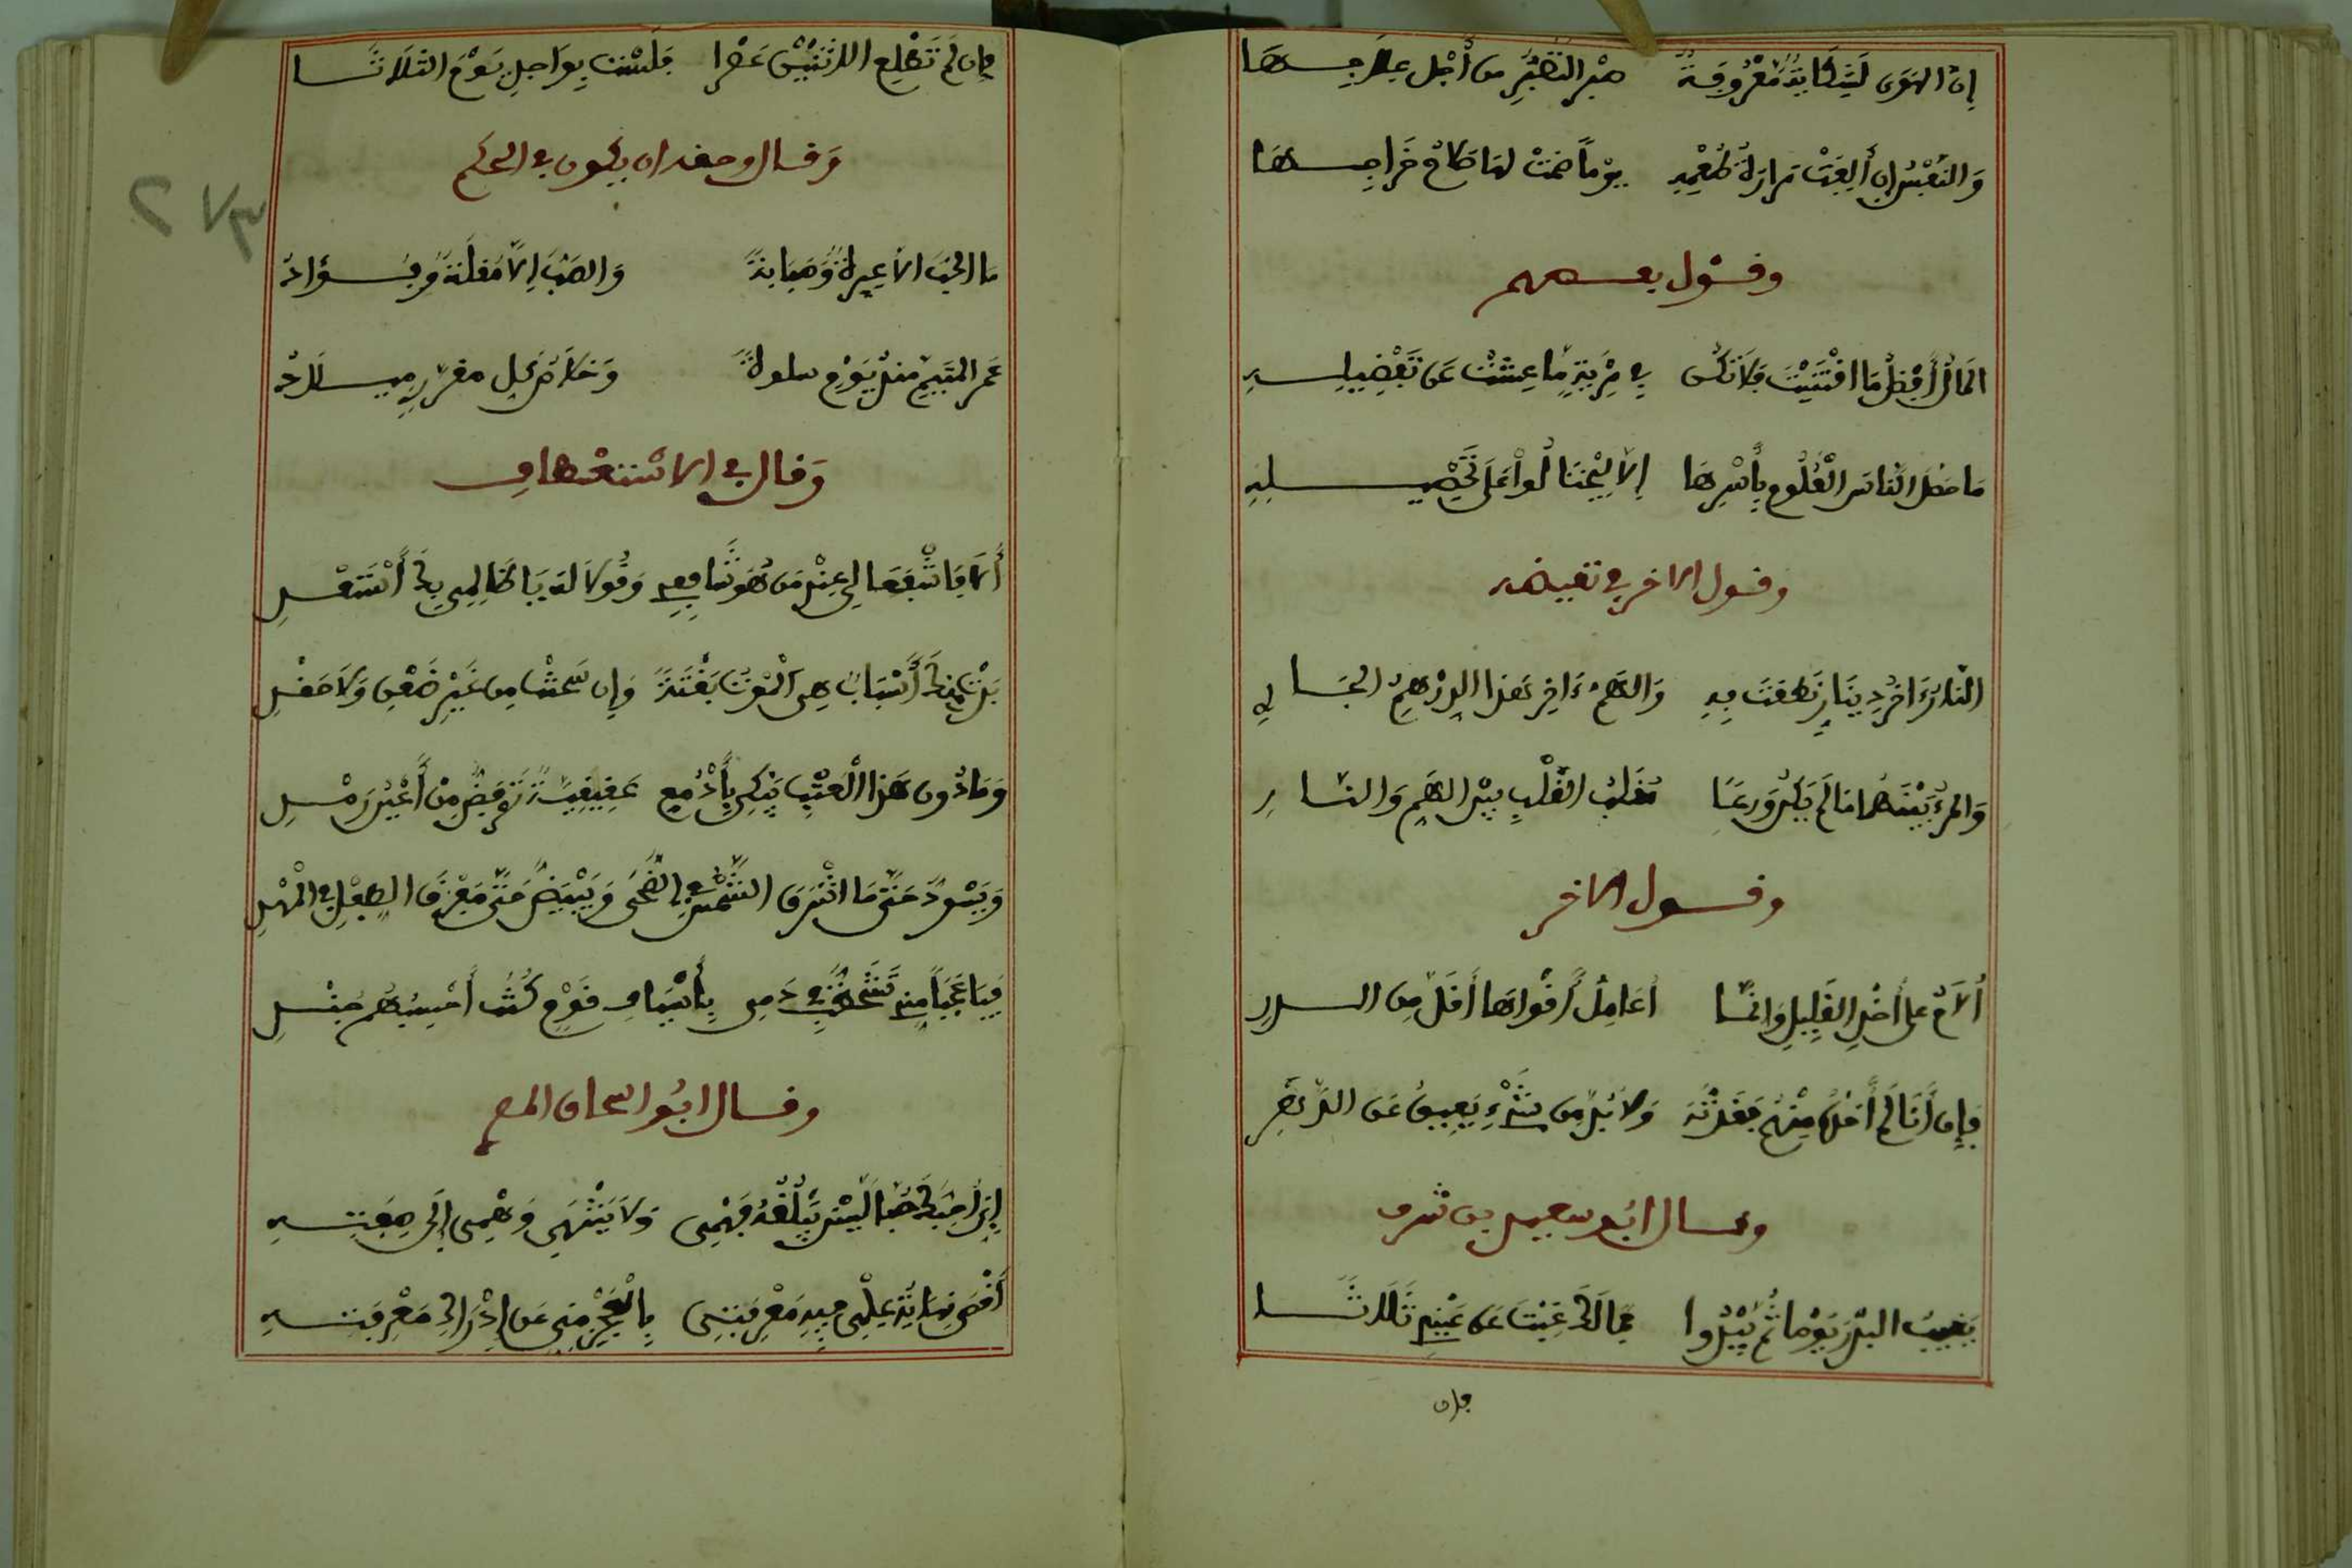 إن الهوى لشكاية معروفة صبر التصبر من أجل علاجها
والنفس إن ألفت مرارة طعمه يوما ضمنت لها صلاح خراجها
وقول بعضهم
المال أفضل ما اقتنيت فلا تكن في مرية ما عشت عن تفضيله
ما حصل الناس العلوم بأسرها إلا ليحتالوا على تحصيله
وقول الاخر في نقيضه
النار ءاخر دينار نطقت به والهم ءاخر هذا الدرهم الجاري
والمرء بينهما ما لم يكن ورعا معذب القلب بين الهم والنار
وقول الاخر
ألام على أخذ القليل وإنما أعامل أقواما أقل من الذر
فإن أنا لم ءاخذه منهم فقدته ولا بد من شيء يعين على الدهر
وقال ابو سعيد بن شرف
يغيب البدر يوما ثم يبدوا فما لك غبت عن عيني ثلاثا
فإن
فإن لم تطلع الاثنين عصرا فلست بواجدي يوم الثلاثا
وقال وحقه ان يكون في الحكم
ما الحب الا عبرة وصبابة والصب إلا مقلة وفؤاد
عمر المتيم منذ يوم سلوة وخلاص كل
وقال في الاستعطاف
ألا فاشفعا لي عند من هو شافعي وقولا له يا ظالمي بك أستعدي
بدت منك أسباب هي الموت بغتة وإن سمحت من غير ضغن ولا حقد
وما دون هذا العتب يبكي بأدمع عقيقية ترفض من أعين رمد
ويسود حتى ما اشرق الشمس في الضحى ويبيض حتى مفرق الطفل في المهد
فيا عجبا منهم تشحذ في دمي بأسياف قوم كنت أحسبهم جندي
وقال ابو اسحاق
إدراك حبك حبا ليس يبلغه فهمي ولا ينتهي وهمي إلى صفته
أقصى نهاية علمي فيه معرفتي بالعجز مني عن إدراك معرفته